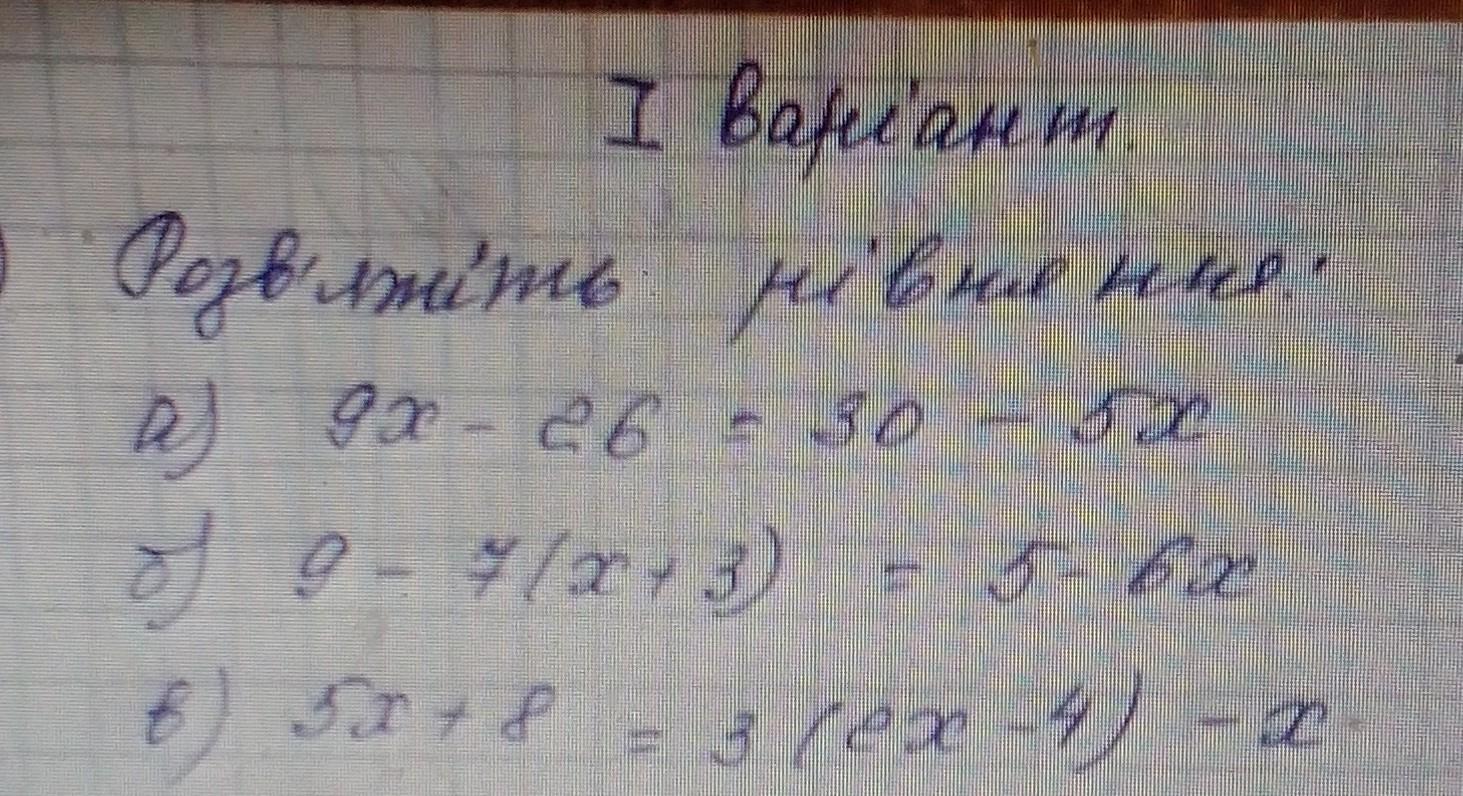 I варіант.
) Розв'яжіть рівняння:
а) 9x - 26 = 30 - 5x
б) 9 - 7(x + 3) = 5 - 6x
в) 5x + 8 = 3(2x - 4) - x